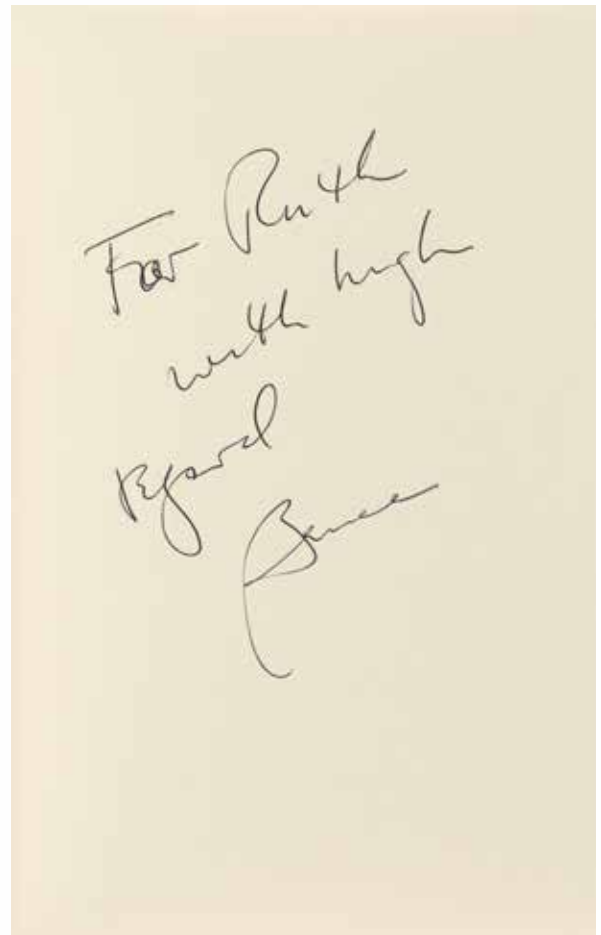 For Ruth
with high
regard